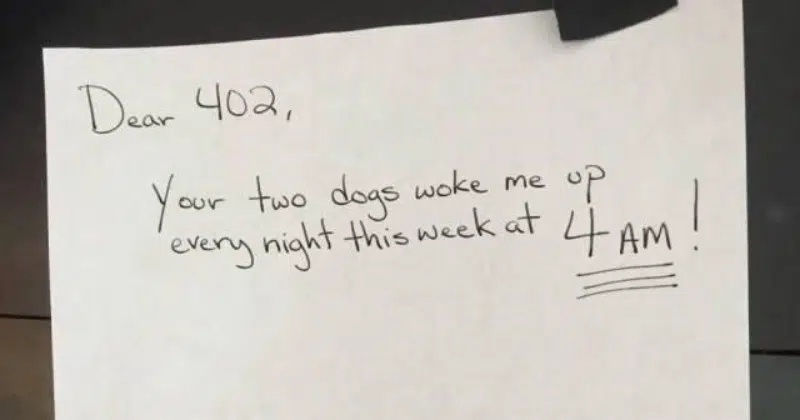 Dear 402,
Your two dogs woke me up
every night this week at 4 AM!